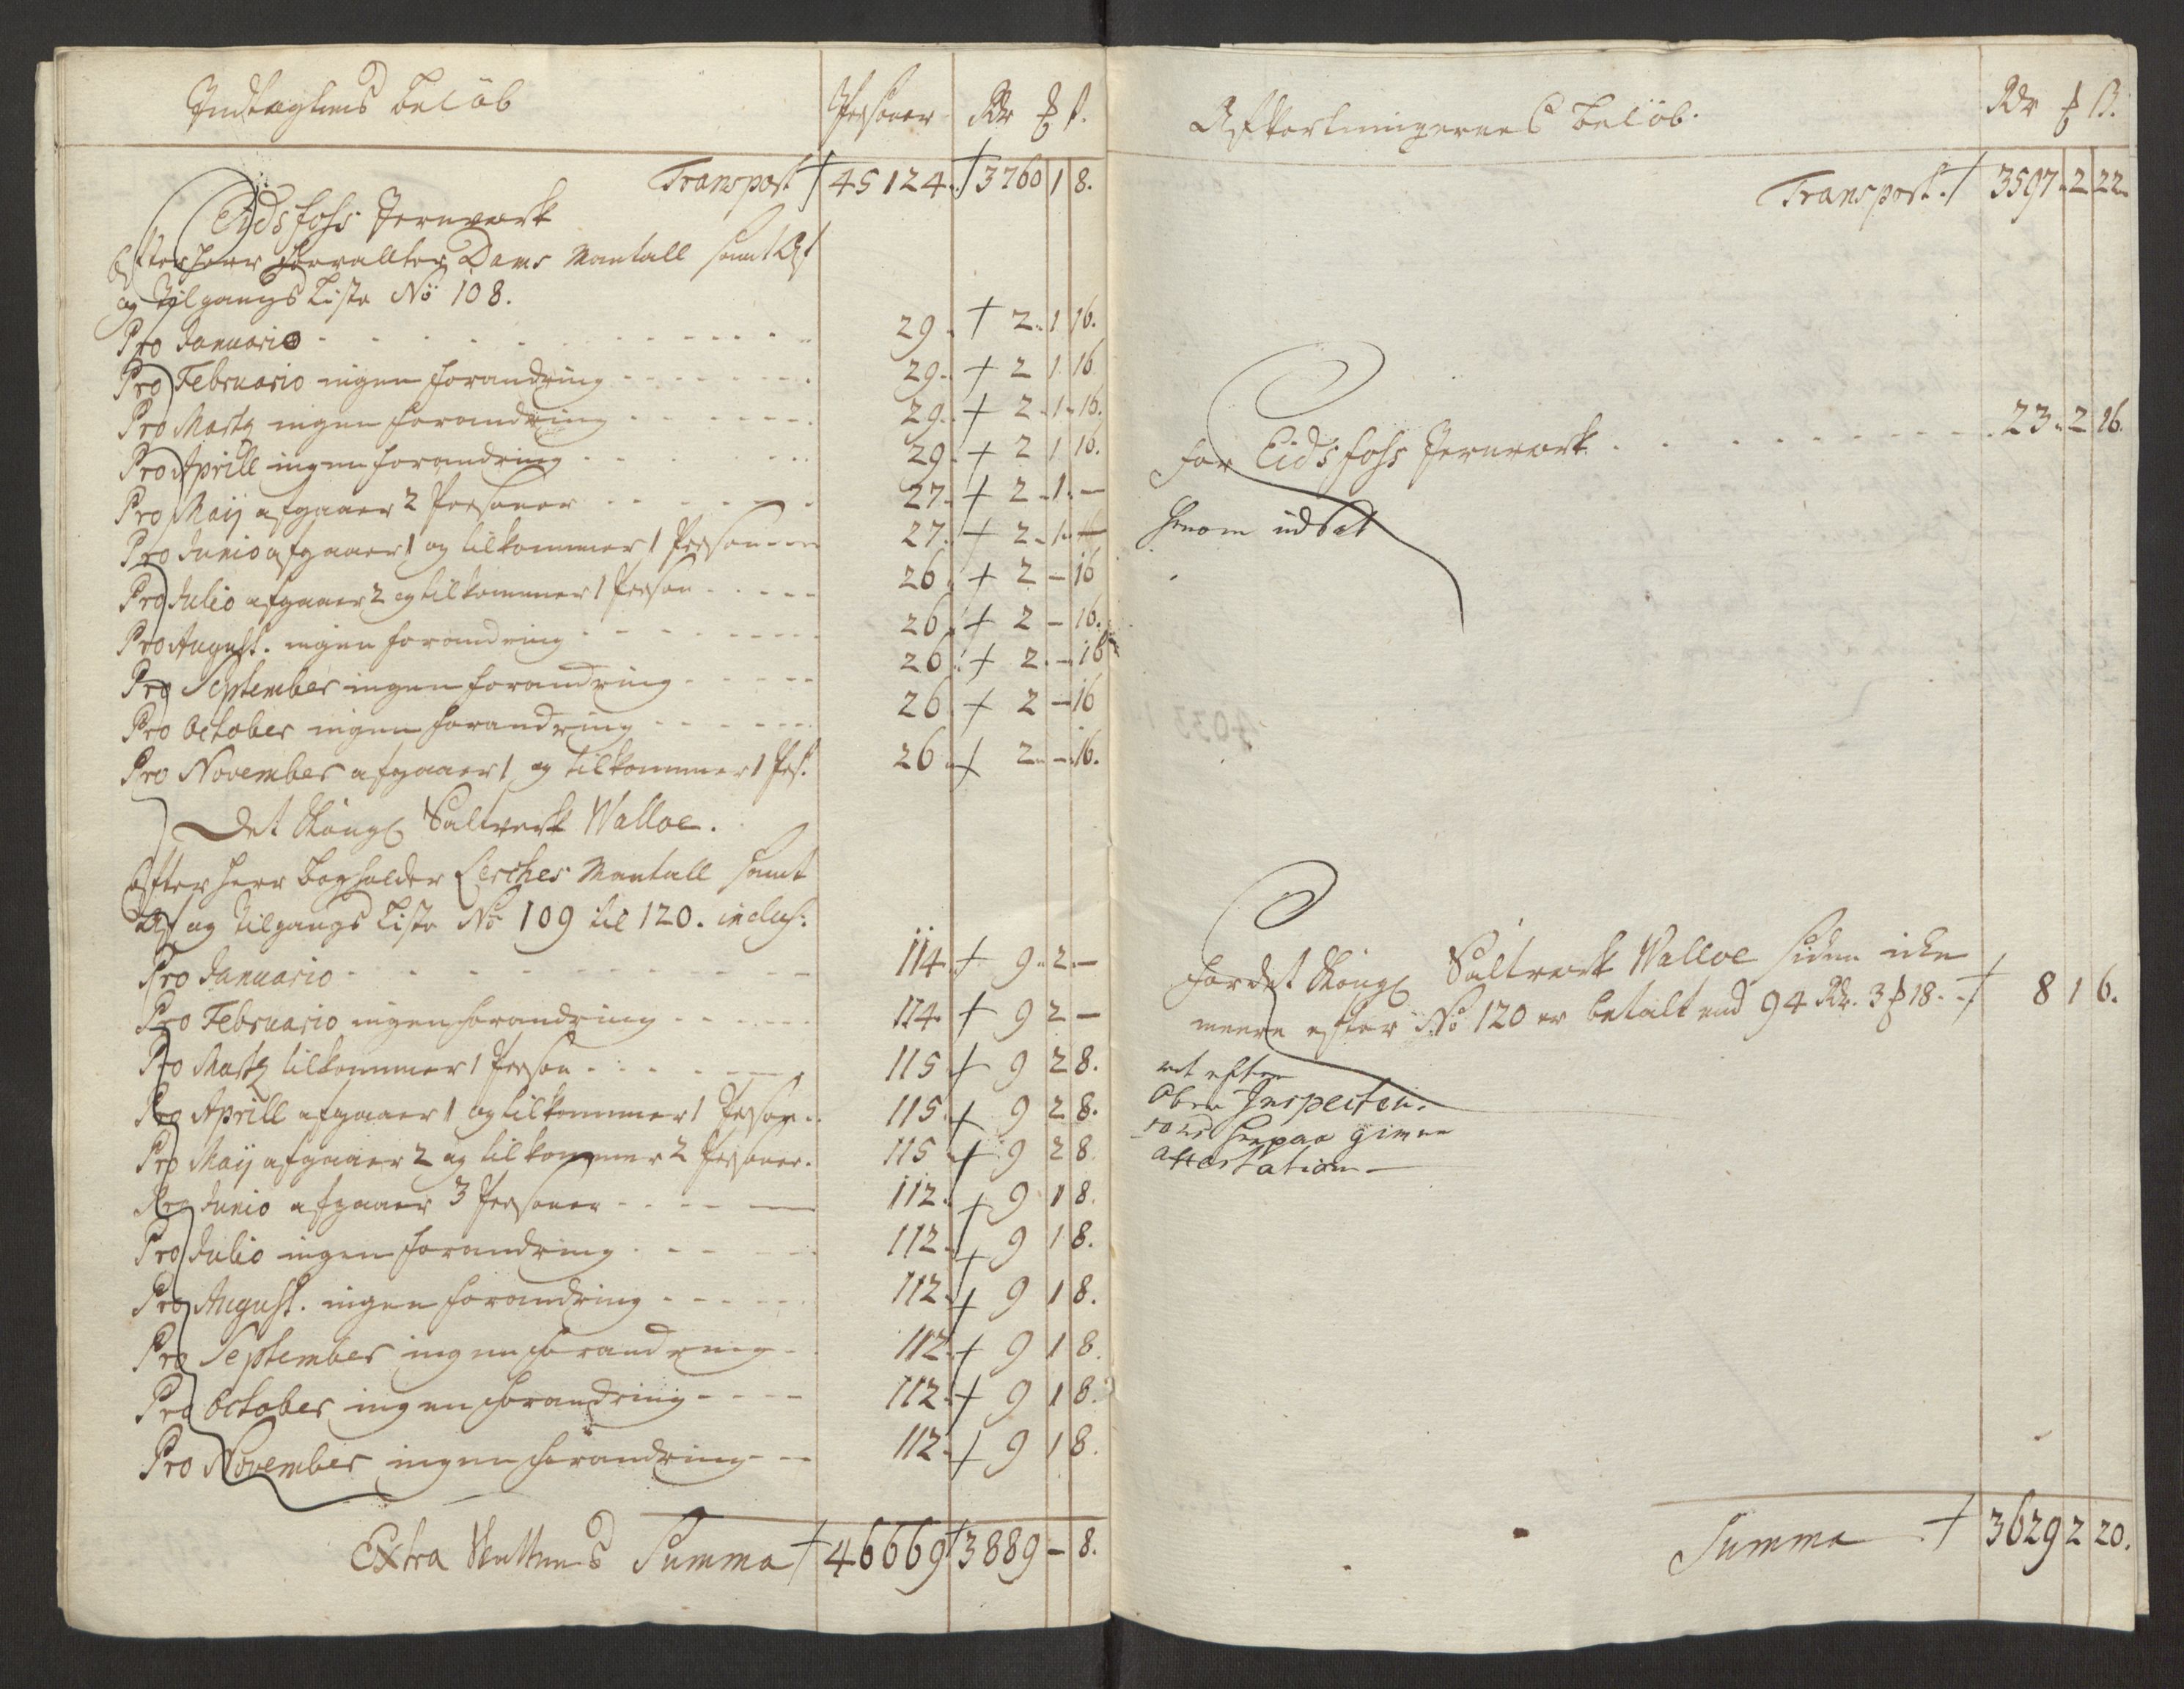 Indtægtens Beløb Personer Rdr ß
Transport 45124. 3760 1 8.
Eidsfoss Jernværk
Efter Herr Forvallter Dams Mantall samt Af
og Tilgangs Liste No 108.
Pro Januario - - - 29. 2. 1 16.
Pro Februario ingen forandring - - - 29. 2 1 16
Pro Marty ingen forandring - - - 29. 2. 1. 16.
Pro Aprill ingen forandring - - - 29. 2 1 16.
Pro Maij afgaaer 2 Personer - - - 27. 2. 1. —
Pro Junio afgaaer 1 og tilkommer 1 Person - - - 27. 2. 1. —
Pro Julio afgaaer 2 og tilkommer 1 Person - - - 26. 2 — 16
Pro August. ingen forandring - - - 26. 2 — 16.
Pro September ingen forandring - - - 26. 2. — 16
Pro October ingen forandring - - - 26. 2 — 16
Pro November afgaaer 1 og tilkommer 1 Pers. 26. 2. — 16.
Det Kongl Saltverk Walloe.
Efter Herr Bogholder Lerches Mantall samt
Af og Tilgangs Liste No 109 til 120. inclus:
Pro Januario - - - 114. 9. 2. —
Pro Februario ingen forandring - - - 114. 9 2 —
Pro Marty tilkommer 1 Person - - - 115. 9 2 8.
Pro Aprill afgaaer 1 og tilkommer 1 Person. 115. 9 2 8.
Pro Maij afgaaer 2 og tilkommer 2 Personer. 115. 9 2 8
Pro Junio afgaaer 3 Personer - - - 112. 9 1 8.
Pro Julio ingen forandring - - - 112. 9 1 8.
Pro August. ingen forandring - - - 112. 9 1 8.
Pro September ingen forandring - 112. 9 1 8.
Pro October ingen forandring - - - 112. 9 1 8.
Pro November ingen forandring - - 112. 9 1 8.
Extra Skattens Summa 46669 3889 — 8.
Afkortningernes Beløb. Rdr ß.
Transport. 3597. 2 22.
For Eidsfoss Jernværk - - - 23. 2 16.
Herom udsat
For det Kongl Saltverk Walloe siden icke
meere efter No 120 er betalt end 94 Rdr. 3 18. 8 1 6.
efter
Ober Inspecteu-
rens herpaa givne
Attestation —
Summa 3629 2 20.